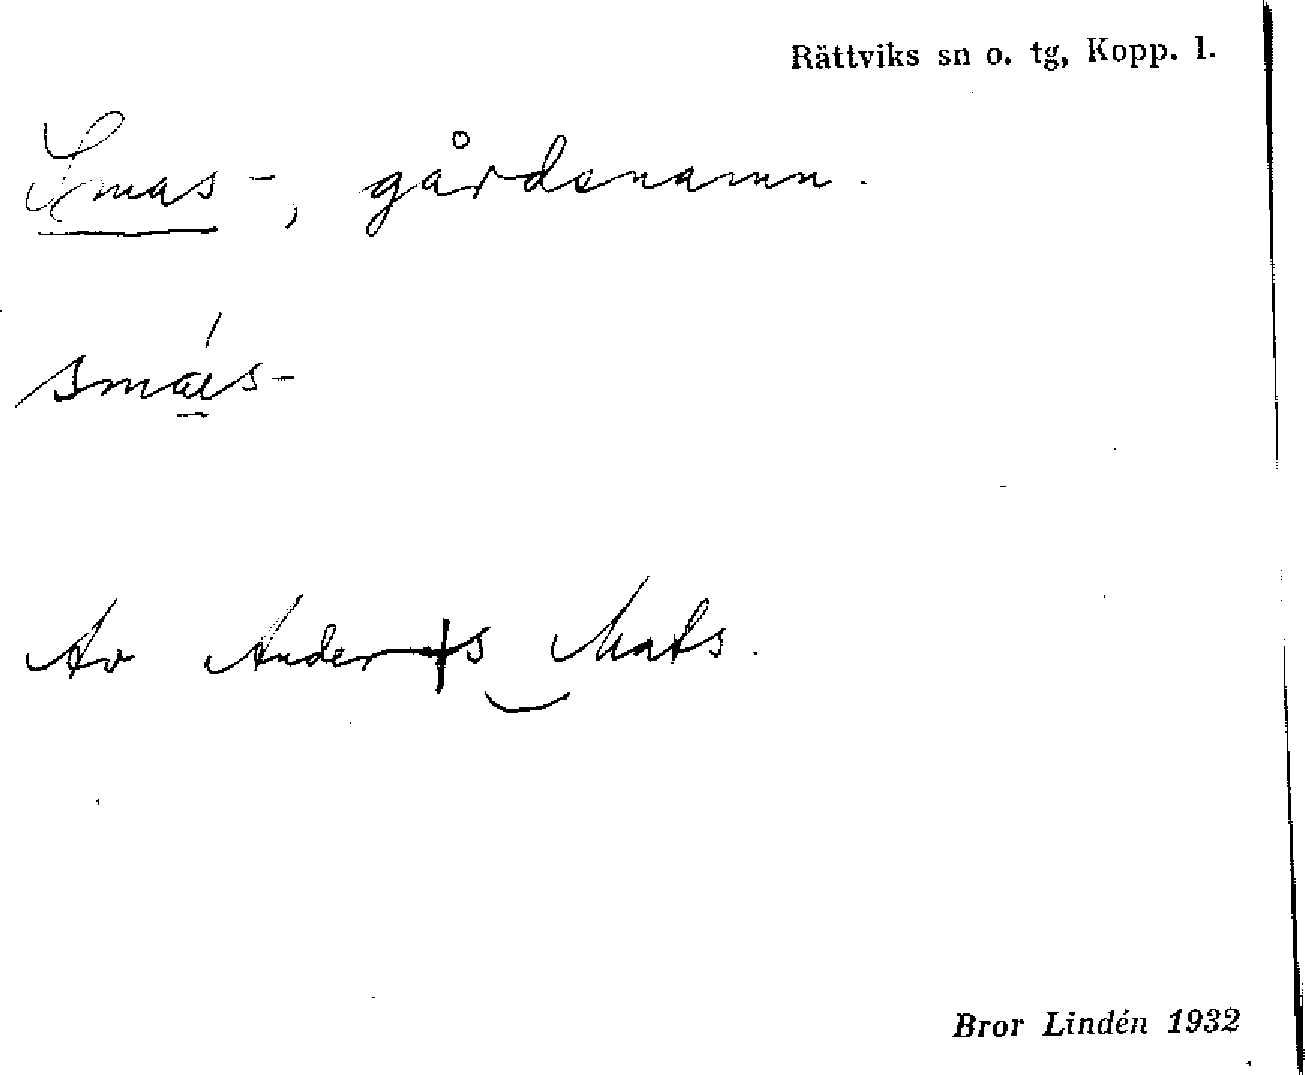 Rättviks sn o. tg, Kopp. l.
Smas-, gårdsnamn.
smás-
Av Anders Mats.
Bror Lindén 1932